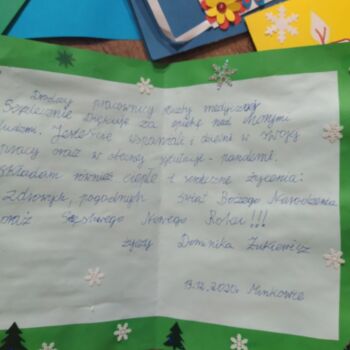 Drodzy pracownicy służby medycznej
Serdecznie dziękuję za opiekę nad chorymi
ludźmi. Jesteście wspaniali i dzielni w swojej
pracy oraz w obecnej sytuacji - pandemii.
Składam również ciepłe i serdeczne życzenia:
Zdrowych, pogodnych świąt Bożego Narodzenia
oraz Szczęśliwego Nowego Roku!!!
życzy Dominika Żukiewicz
13.12.2020r Minkowce